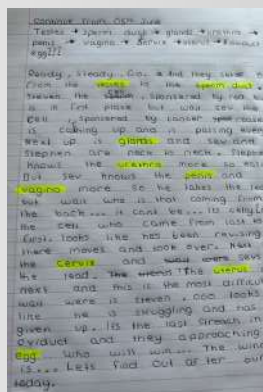 Continue from 05th June
Testes → sperm duct → glands → urethra →
penis → vagina → cervix → uterus → oviduct
egg!!!
Ready, Steady, Go. And they set
from the testes to the sperm duct.
Steven the sponsored by red
is in first place but wait sev the
Cell, sponsored by cancer
is coming up and is passing
Next up is glands and sev and
Stephen are neck n neck.
knows the urethra more so
But sev knows the penis and
vagina more so he takes the lead
but wait who is that coming from
the back... it cant be... its
the cell who came from last to
first. looks like has been revising
there moves and took over. Next
the cervix and
the lead. The uterus
next and this is the most difficult
wait were is steven, ooo looks
like he is struggling and has
given up. Its the last streach in
oviduct and they approaching
egg. Who will win... The
is... Lets find out after our
today.